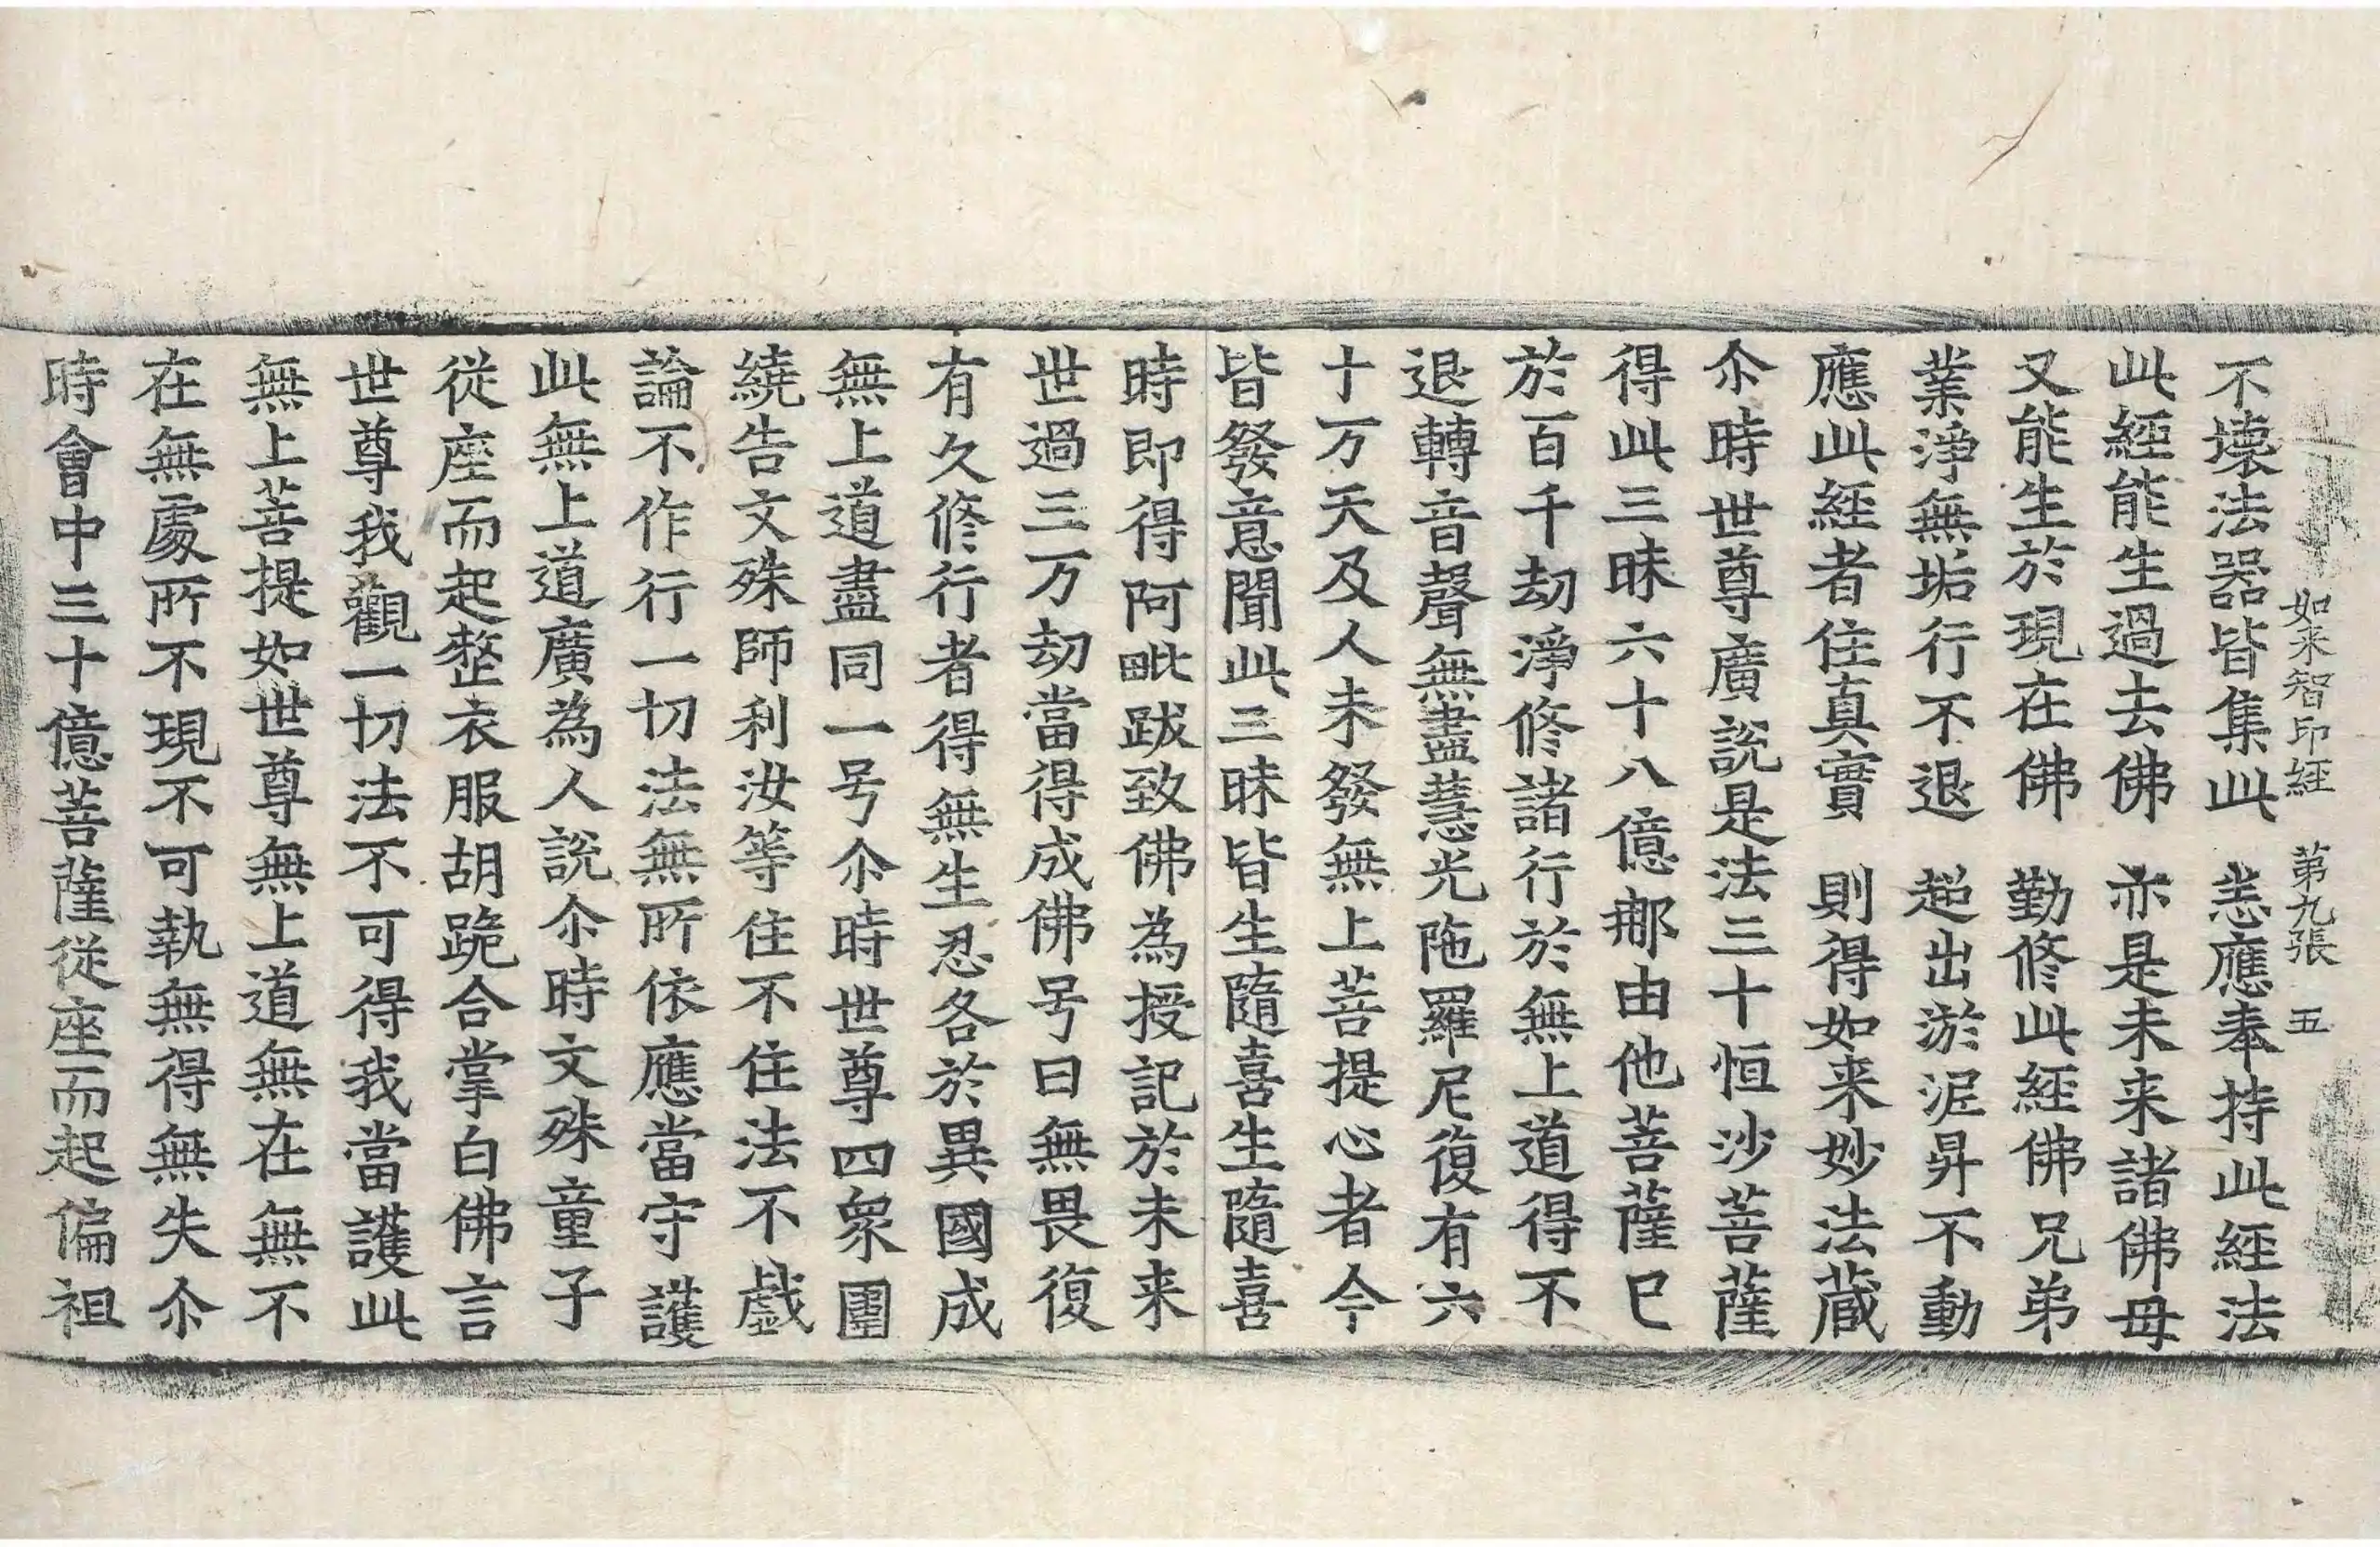 如来智印経 第九張 五
不壊法器皆集此 恙應奉持此経法
此経能生過去佛 亦是未来諸佛母
又能生於現在佛 勤修此経佛兄弟
業淨無垢行不退 超出淤泥昇不動
應此経者住真實 則得如来妙法蔵
尒時世尊廣說是法三十恒沙菩薩
得此三昧六十八億那由他菩薩巳
於百千劫淨修諸行於無上道得不
退轉音聲無盡慧光陁羅尼復有六
十万天及人未發無上菩提心者今
皆發意聞此三昧皆生隨喜生隨喜
時即得阿毗跋致佛為授記於未来
世過三万劫當得成佛号曰無畏復
有久修行者得無生忍各於異國成
無上道盡同一号尒時世尊四衆圍
繞告文殊師利汝等住不住法不戲
論不作行一切法無所依應當守護
此無上道廣為人說尒時文殊童子
從座而起整衣服胡跪合掌白佛言
世尊我觀一切法不可得我當護此
無上菩提如世尊無上道無在無不
在無處所不現不可執無得無失尒
時會中三十億菩薩從座而起偏袒